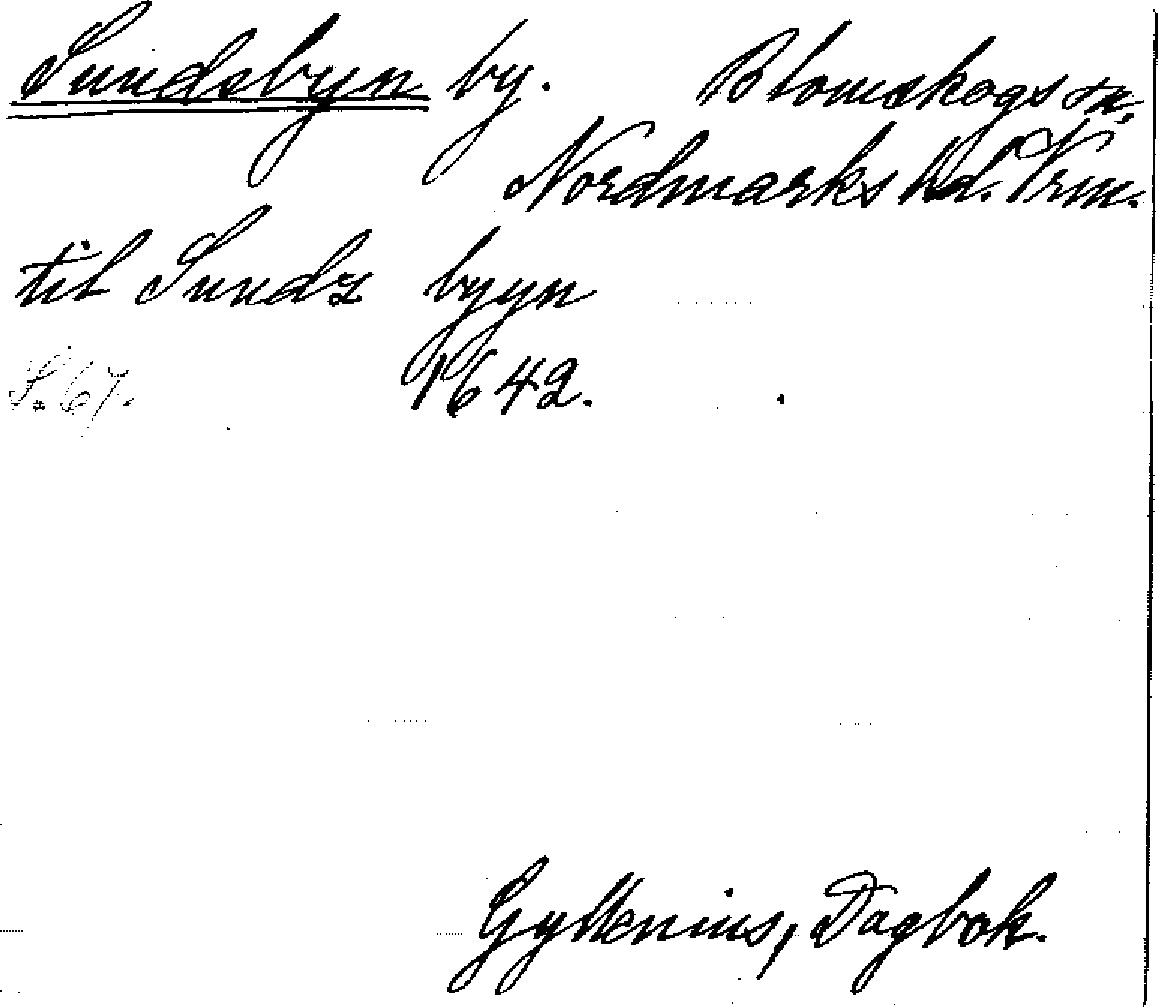 Sundsbyn by. Blomskogs sn,
Nordmarks hd. Vrm.
til Sundz byyn
S. 67. 1642.
Gyllenius, Dagbok.